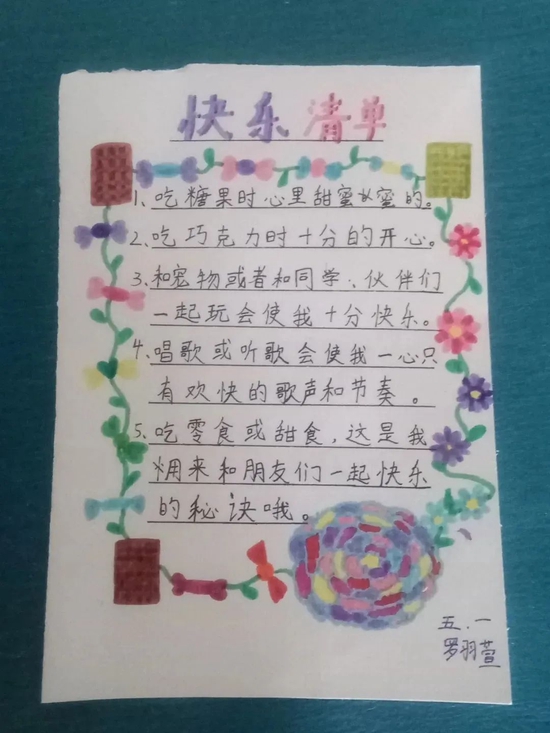 快乐清单
1、吃糖果时心里甜蜜蜜的。
2、吃巧克力时十分的开心。
3、和宠物或者和同学、伙伴们
一起玩会使我十分快乐。
4、唱歌或听歌会使我一心只
有欢快的歌声和节奏。
5、吃零食或甜食，这是我
用来和朋友们一起快乐
的秘诀哦。
五.一
罗羽萱